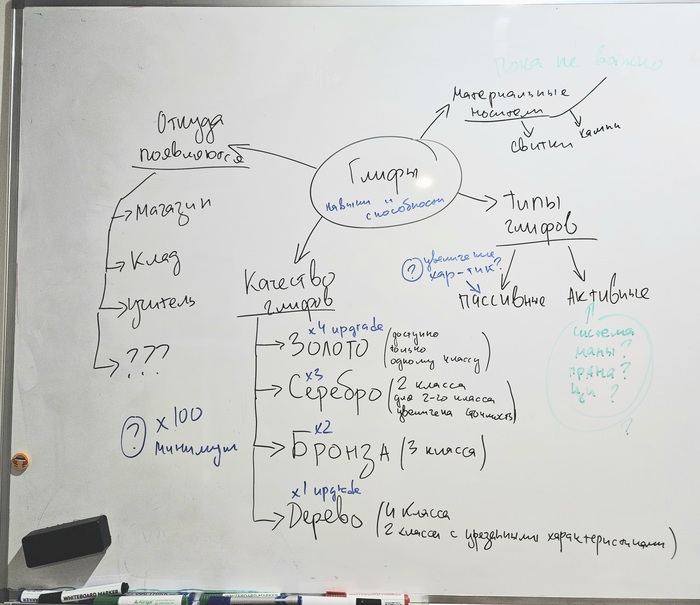 пока не важно
материальные
носители
свитки
камни
Откуда
появляются
магазин
Клад
учитель
???
Глифы
навыки и
способности
Типы
глифов
? увеличение
хар-тик?
пассивные
Активные
система
маны?
прана?
ци ?
?
Качество
глифов
x4 upgrade
Золото (доступно
только
одному классу)
x3
Серебро (2 класса
для 2-го класса
увеличена стоимость)
x2
Бронза (3 класса)
x1 upgrade
Дерево (4 класса
2 класса с урезанными характеристиками)
? x100
минимум
WHITEBOARD MARKER